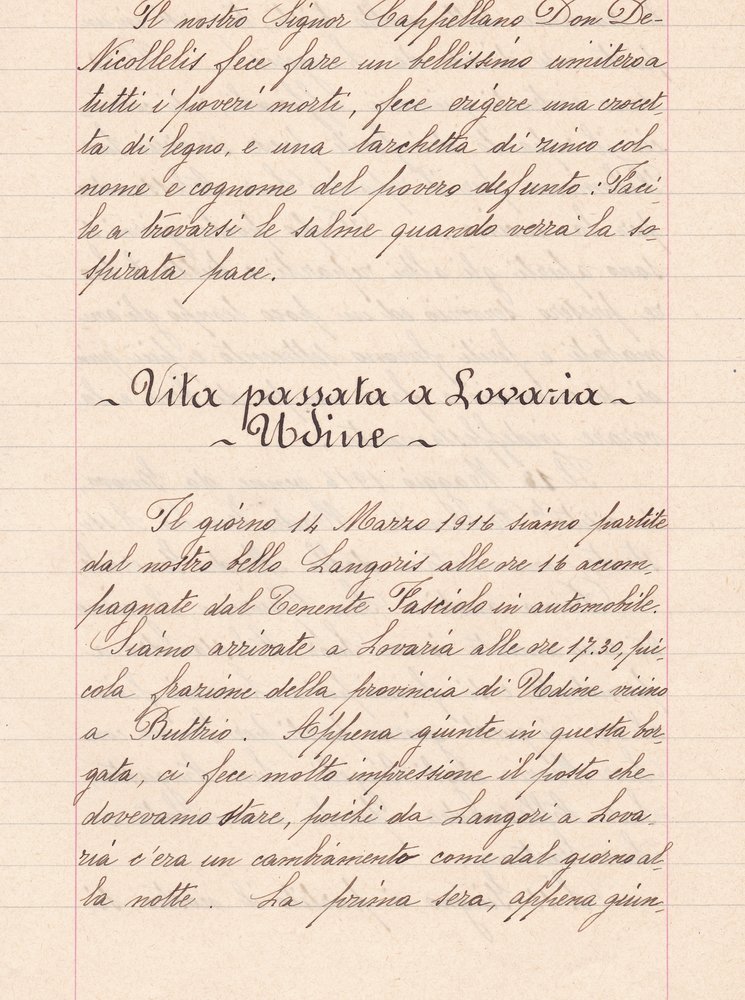 Il nostro Signor Cappellano Don De-
Nicollelis fece fare un bellissimo cimitero a
tutti i poveri morti, fece erigere una crocet-
ta di legno, e una tarchetta di zinco col
nome e cognome del povero defunto: Faci-
le a trovarsi le salme quando verrà la so-
spirata pace.
~ Vita passata a Lovaria ~
~ Udine ~
Il giorno 14 Marzo 1916 siamo partite
dal nostro bello Langoris alle ore 16 accom-
pagnate dal Tenente Fasciolo in automobile.
Siamo arrivate a Lovaria alle ore 17.30, pic-
cola frazione della provincia di Udine vicino
a Buttrio. Appena giunte in questa bor-
gata, ci fece molto impressione il posto che
dovevamo stare, poichi da Langori a Lova-
ria c'era un cambiamento come dal giorno al-
la notte. La prima sera, appena giun-